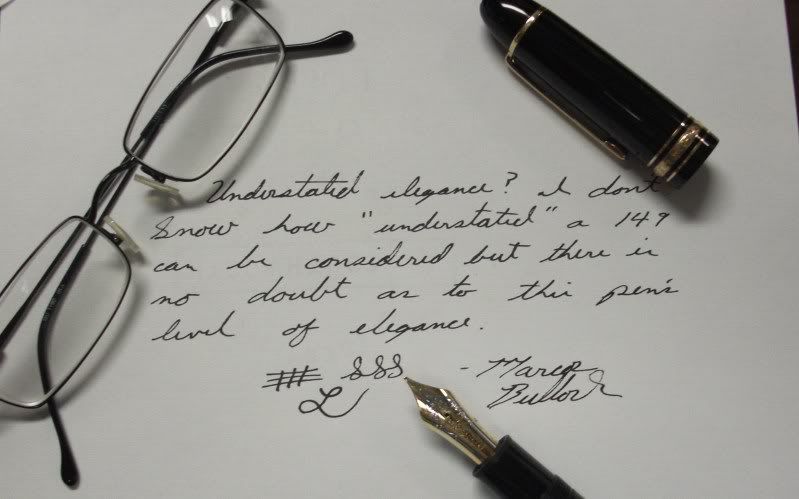 Understated elegance? I don't
know how "understated" a 149
can be considered but there is
no doubt as to this pen's
level of elegance.
- Marcos
Bullock